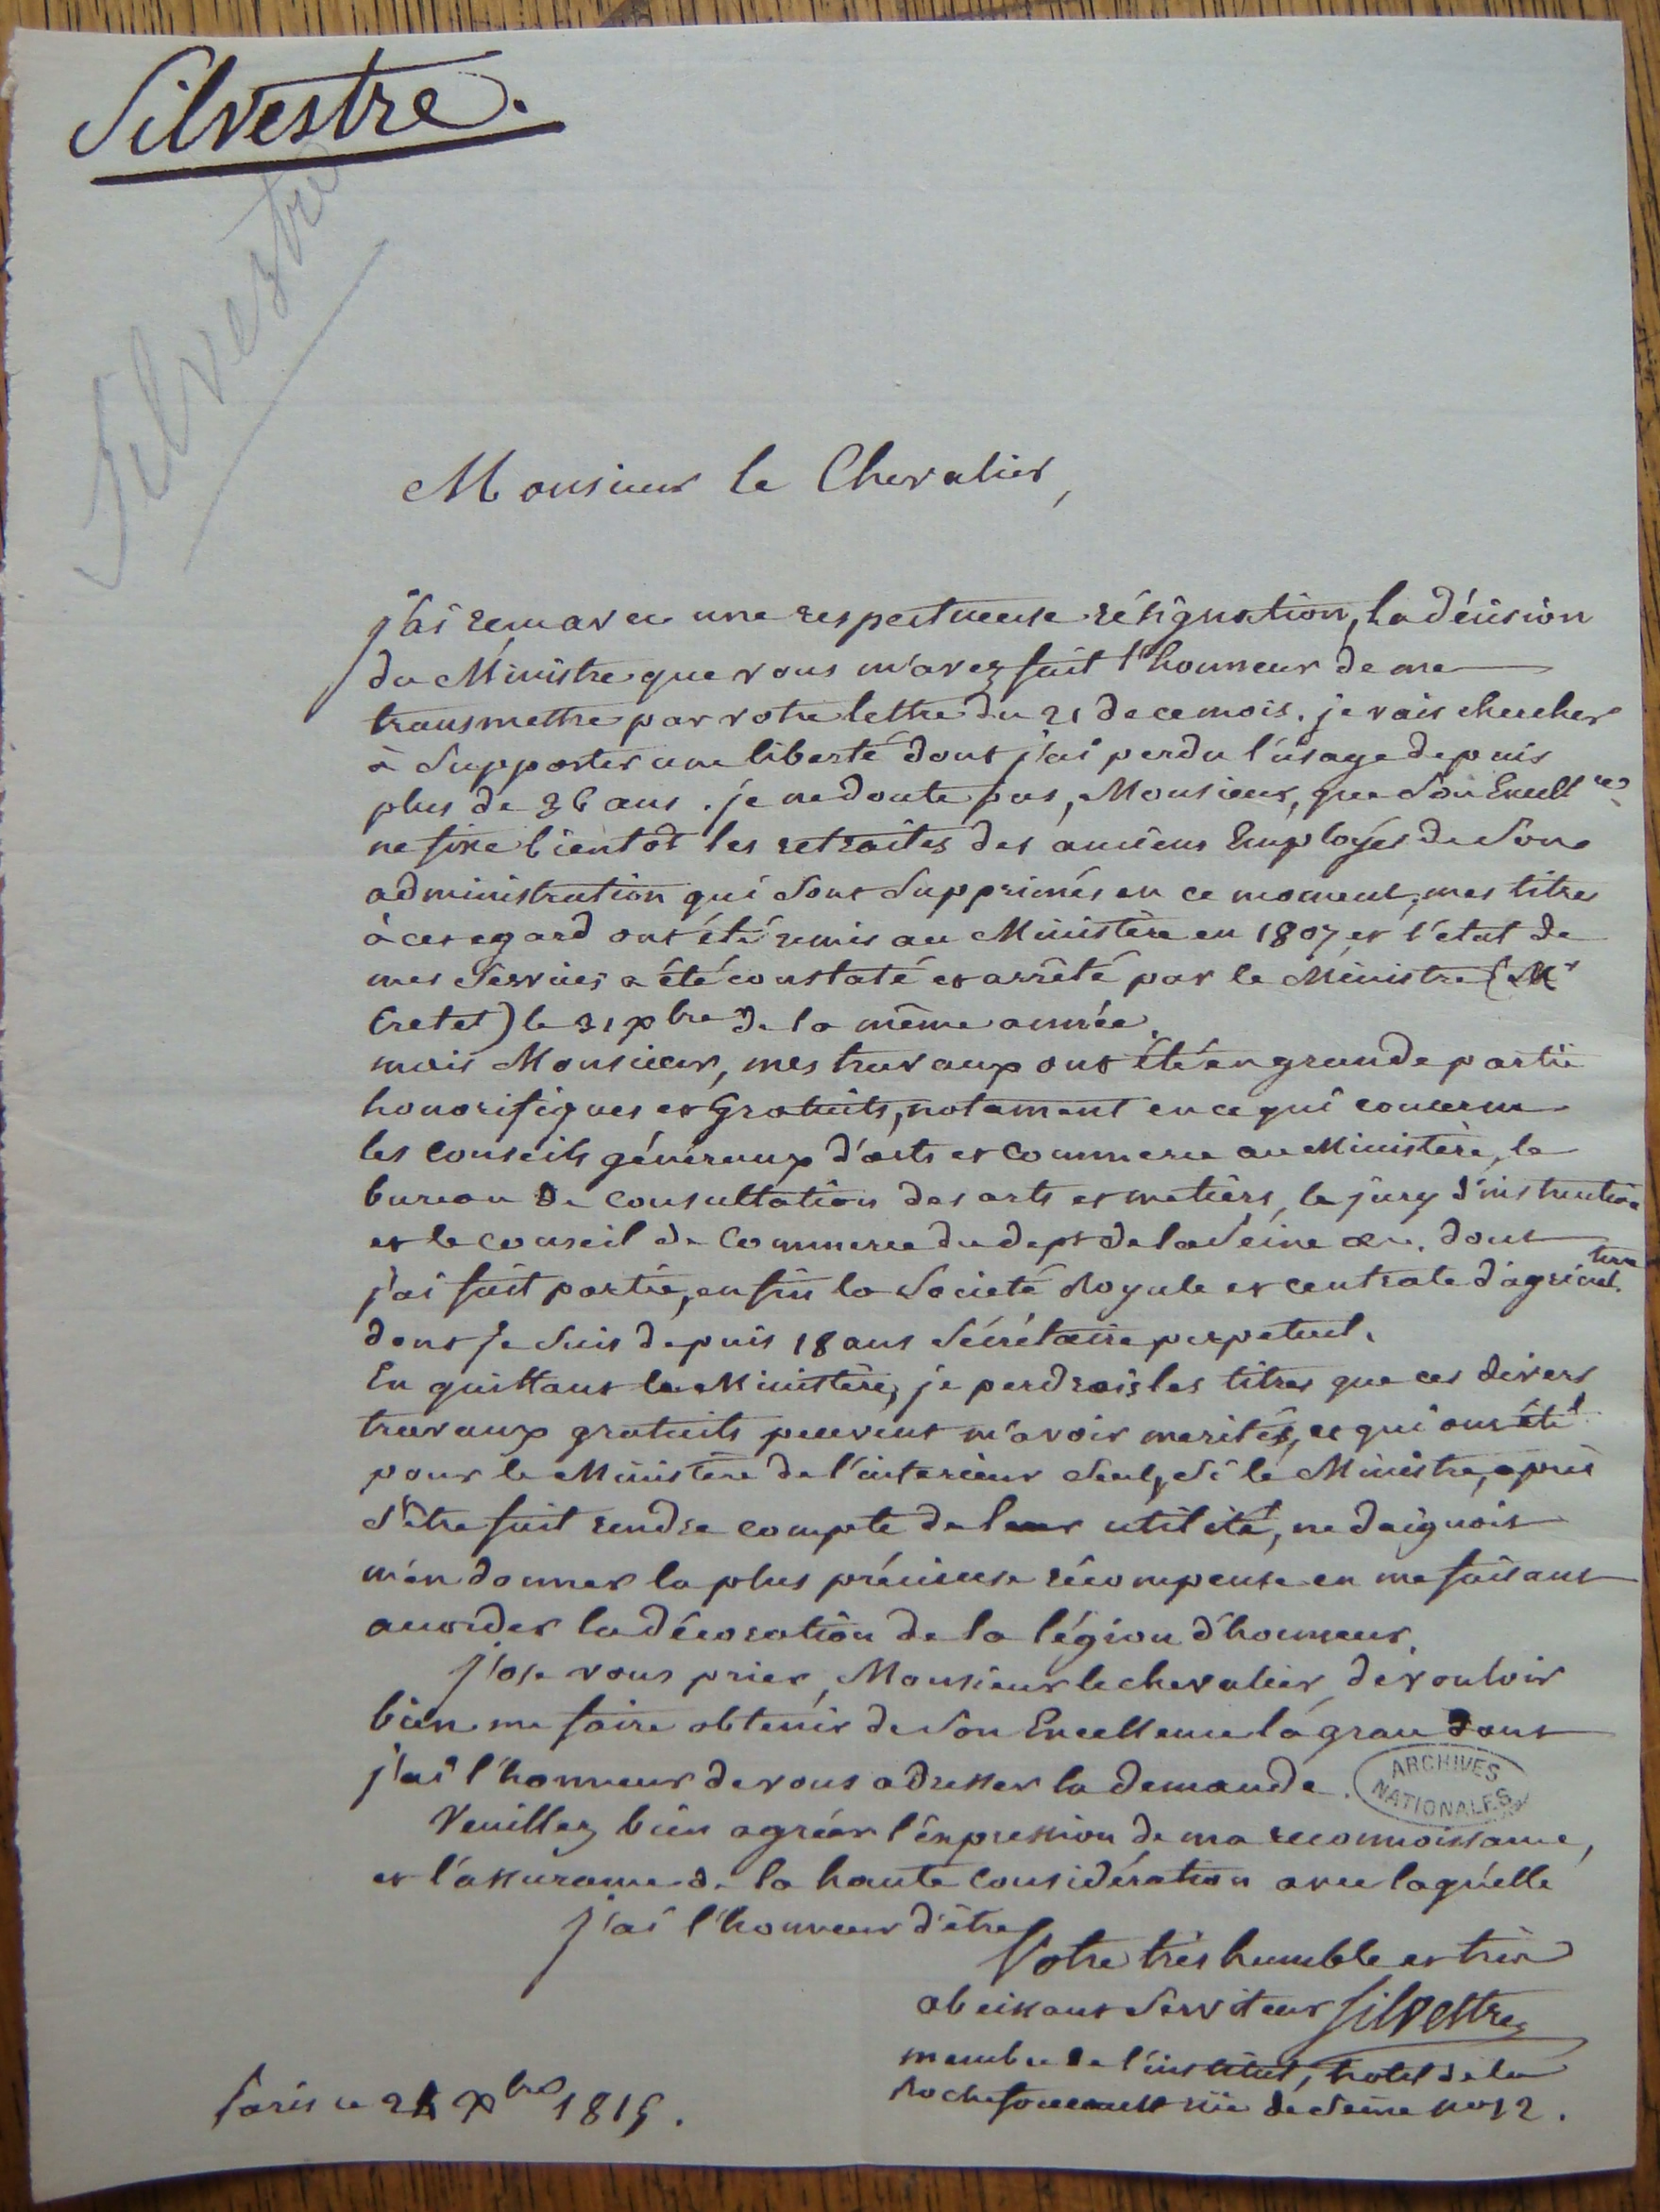 Silvestre.
Silvestre
Monsieur le Chevalier,
j'ai recu avec une respectueuse résignation, la décision
du Ministre que vous m'avez fait l'honneur de me
transmettre par votre lettre du 21 de ce mois. je vais chercher
à Supporter une liberté dont j'ai perdu l'usage depuis
plus de 36 ans. je ne doute pas, Monsieur, que Son Excell
ne fixe bientôt les retraites des anciens Employés de Son
administration qui Sont Supprimés en ce moment; mes titres
à cet egard ont été remis au Ministère en 1807 et l'etat de
mes Services a été constaté et arrêté par le Ministre (Mr
Cretet) le 31 Xbre de la même année.
mais Monsieur, mes travaux ont été en grande partie
honorifiques et Gratuits, notament en ce qui concerne
les Conseils généraux d'arts et Commerce au Ministère, le
bureau de Consultation des arts et metiers, le jury d'instruction
et le Conseil de Commerce du dept de la Seine &c. dont
j'ai fait partie, enfin la Societé Royale et centrale d'agricul ture
dont je Suis depuis 18 ans Sécrétaire perpetuel.
En quittant le Ministère, je perdrois les titres que ces divers
travaux gratuits peuvent m'avoir merités, et qui ont été
pour le Ministère de l'interieur Seul, Si le Ministre, après
S'être fait rendre compte de leur utilité, ne daignoit
m'en donner la plus précieuse récompense en me faisant
accorder la décoration de la légion d'honneur.
j'ose vous prier, Monsieur le chevalier, de vouloir
bien me faire obtenir de Son Excellence la grace dont
j'ai l'honneur de vous adresser la demande.
ARCHIVES
NATIONALES
Veuillez bien agréer l'expression de ma reconnoissance,
et l'assurance de la haute Considération avec laquelle
j'ai l'honneur d'être
Votre très humble et très
obeissant Serviteur Silvestre
membre de l'institut, hotel de la
Rochefoucault rue de Seine no 12.
Paris ce Xbre 1815.